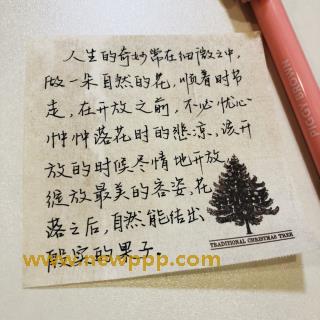 人生的奇妙常在细微之中,
做一朵自然的花,顺着时节
走,在开放之前,不必忧心
忡忡落花时的悲凉,该开
放的时候尽情地开放,
绽放最美的容姿,花
落之后,自然能结出
殷实的果子。
TRADITIONAL CHRISTMAS TREE
PIGGY GROWN
www.newppp.com